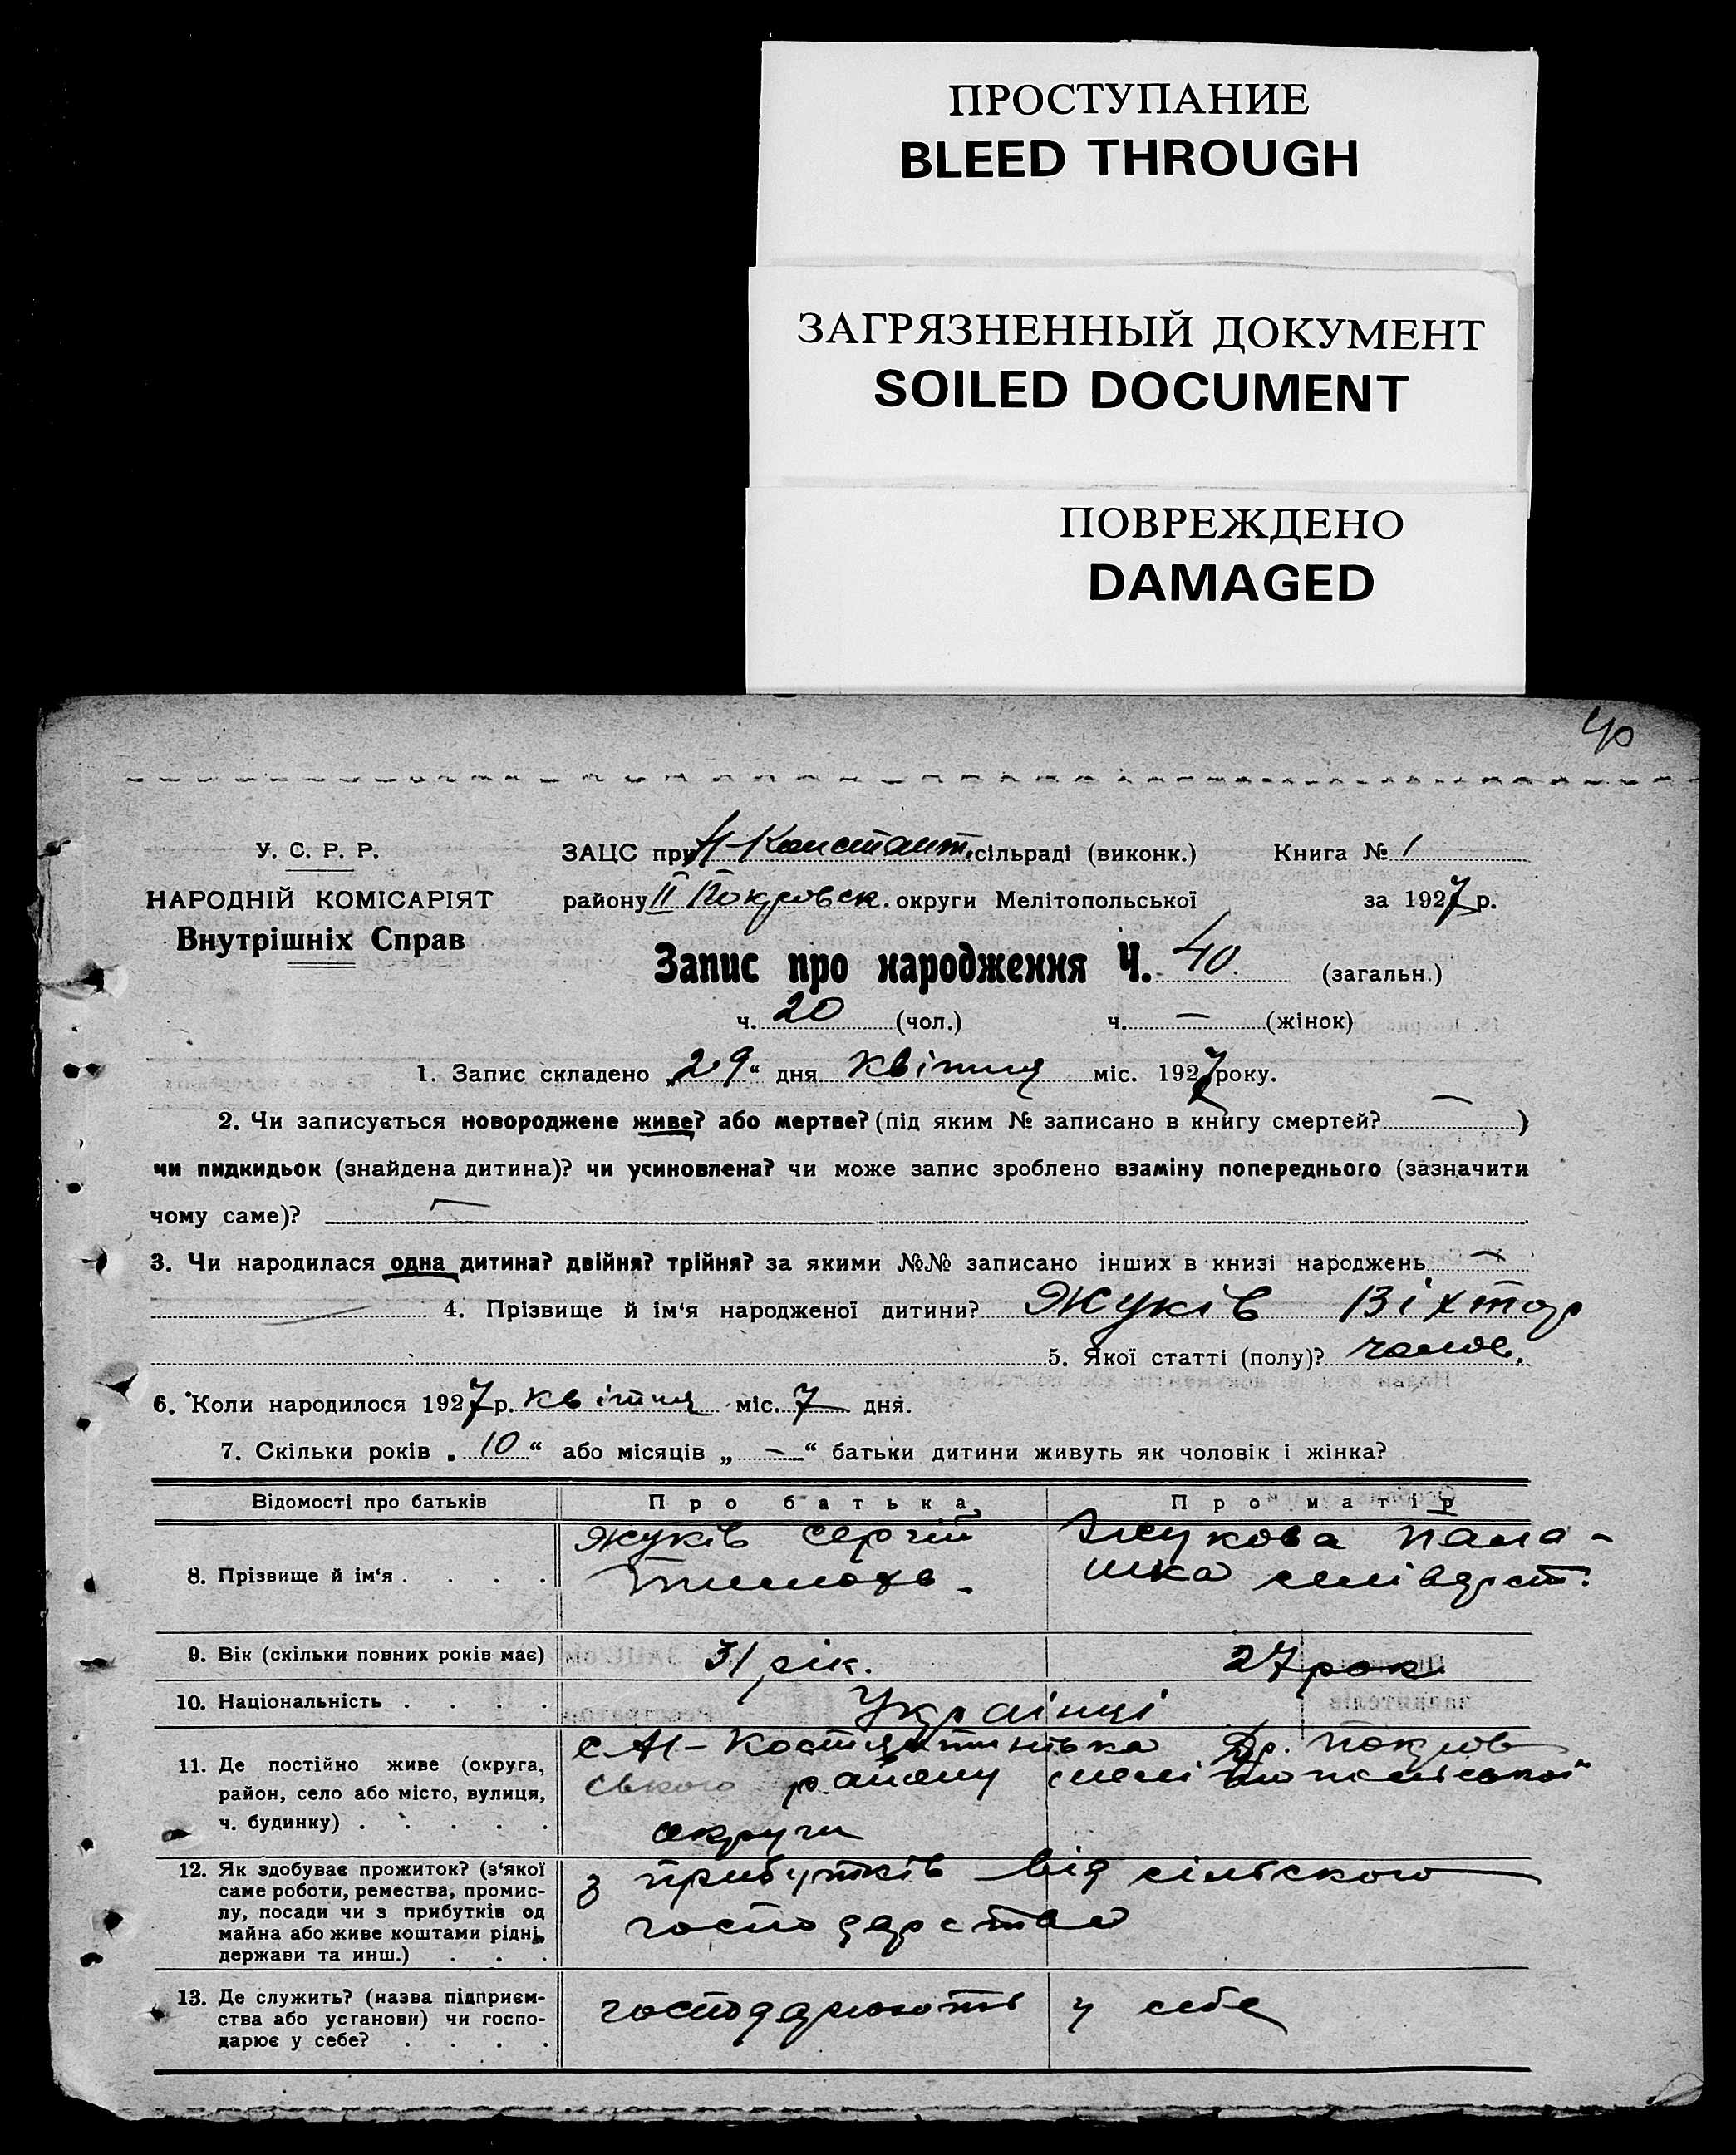 ПРОСТУПАНИЕ
BLEED THROUGH
ЗАГРЯЗНЕННЫЙ ДОКУМЕНТ
SOILED DOCUMENT
ПОВРЕЖДЕНО
DAMAGED
40
У. С. Р. Р.
ЗАЦС при Н-Констант. сільраді (виконк.) Книга № 1
НАРОДНІЙ КОМІСАРІЯТ
району ІІ Покровск. округи Мелітопольської за 1927 р.
Внутрішніх Справ
Запис про народження Ч. 40. (загальн.)
ч. 20 (чол.) ч. — (жінок)
1. Запис складено „29“ дня квітня міс. 1927 року.
2. Чи записується новороджене живе? або мертве? (під яким № записано в книгу смертей? — )
чи пидкидьок (знайдена дитина)? чи усиновлена? чи може запис зроблено взаміну попереднього (зазначити
чому саме)? —
3. Чи народилася одна дитина? двійня? трійня? за якими №№ записано інших в книзі народжень —
4. Прізвище й ім‘я народженої дитини? Жуків Віхтор
5. Якої статті (полу)? чолов.
6. Коли народилося 1927 р. квітня міс. 7 дня.
7. Скільки років „10“ або місяців „—“ батьки дитини живуть як чоловік і жінка?
Відомості про батьків Про батька Про матір
8. Прізвище й ім‘я . . . .
Жуків Сергій
Тимохв.
Жукова Пала-
шка селівдрст.
9. Вік (скільки повних років має) 31 рік. 27 рок.
10. Національність . . . . Українці
11. Де постійно живе (округа,
район, село або місто, вулиця,
ч. будинку) . . . . .
с. Н-Костянтинівка Др. Покров
ського району мелітопольської
округи
12. Як здобуває прожиток? (з‘якої
саме роботи, ремества, промис-
лу, посади чи з прибутків од
майна або живе коштами рідні,
держави та инш.) . . .
з прибутків від сільского
господарства
13. Де служить? (назва підприєм-
ства або установи) чи госпо-
дарює у себе? . . . .
господарюють у себе